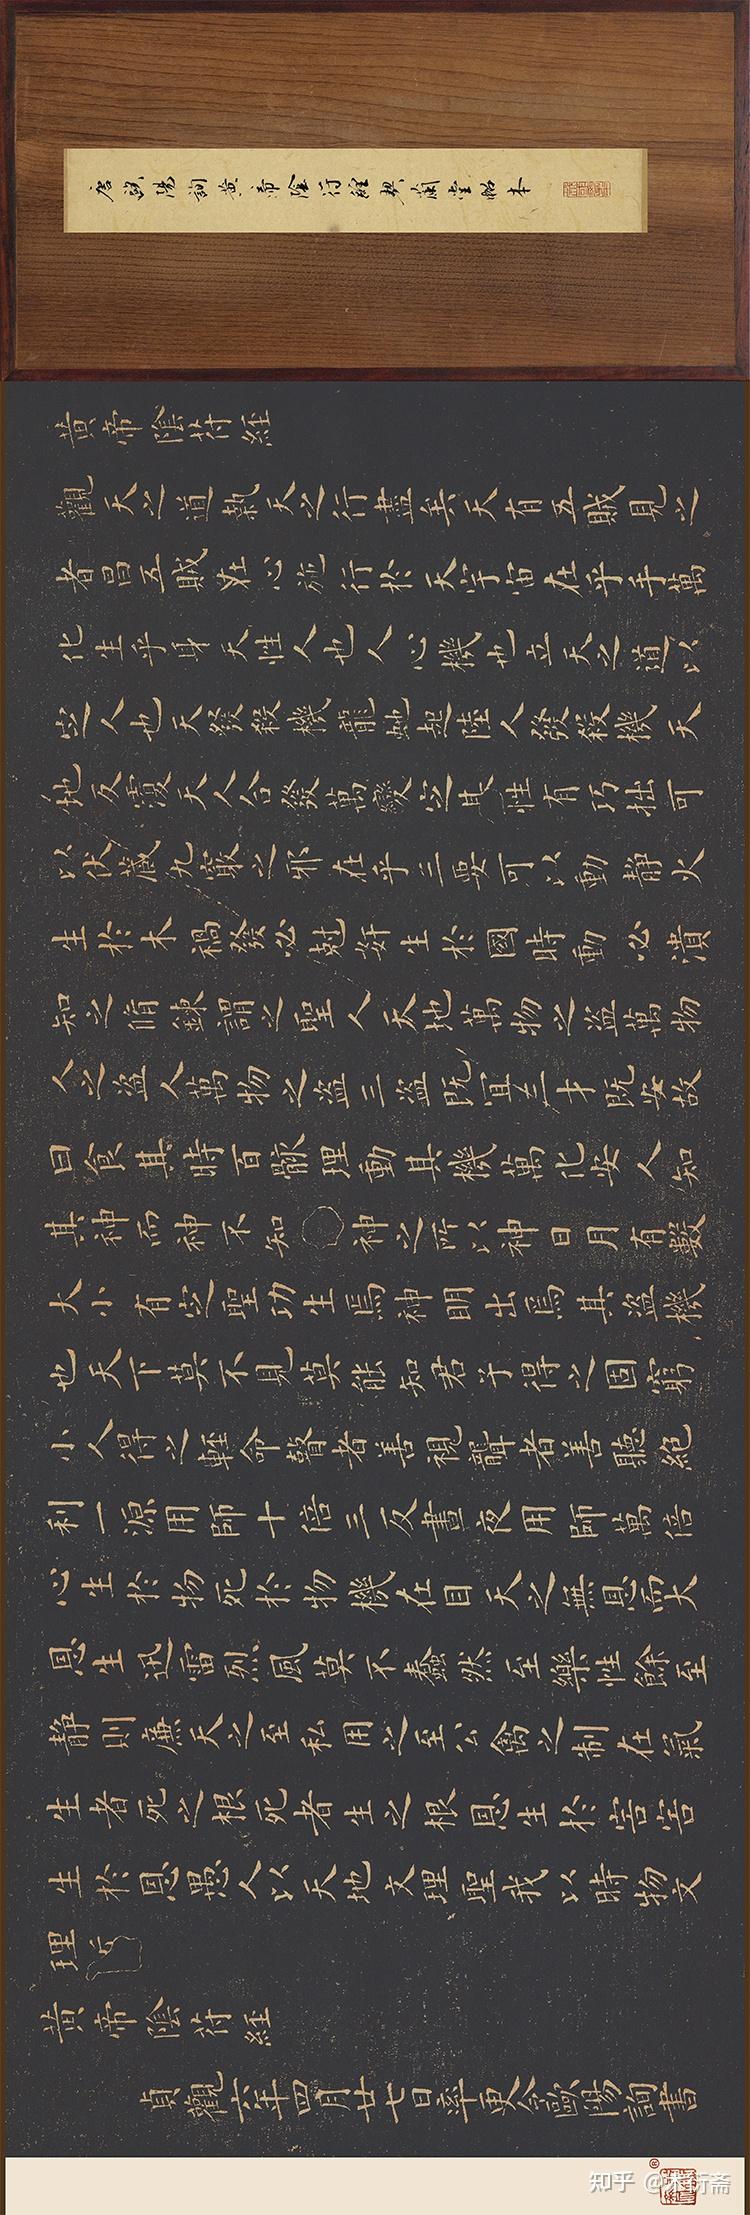 唐歐陽詢黃帝陰符經契蘭堂帖本
黃帝陰符經
觀天之道執天之行盡矣天有五賊見之
者昌五賊在心施行於天宇宙在乎手萬
化生乎身天性人也人心機也立天之道以
定人也天發殺機龍虵起陸人發殺機天
地反覆天人合發萬變定基性有巧拙可
以伏藏九竅之邪在乎三要可以動静火
生於木禍發必尅奸生於國時動必潰
知之脩鍊謂之聖人天地萬物之盜萬物
人之盜人萬物之盜三盜既宜三才既安故
曰食其時百骸理動其機萬化安人知
其神而神不知神之所以神日月有數
大小有定聖功生焉神明出焉其盜機
也天下莫不見莫能知君子得之固窮
小人得之輕命瞽者善視聾者善聽絕
利一源用師十倍三反晝夜用師萬倍
心生於物死於物機在目天之無恩而大
恩生迅雷烈風莫不蠢然至樂性餘至
静則廉天之至私用之至公禽之制在氣
生者死之根死者生之根恩生於害害
生於恩愚人以天地文理聖我以時物文
理
黃帝陰符經
貞觀六年四月廿七日率更令歐陽詢書
知乎 @木衍斋